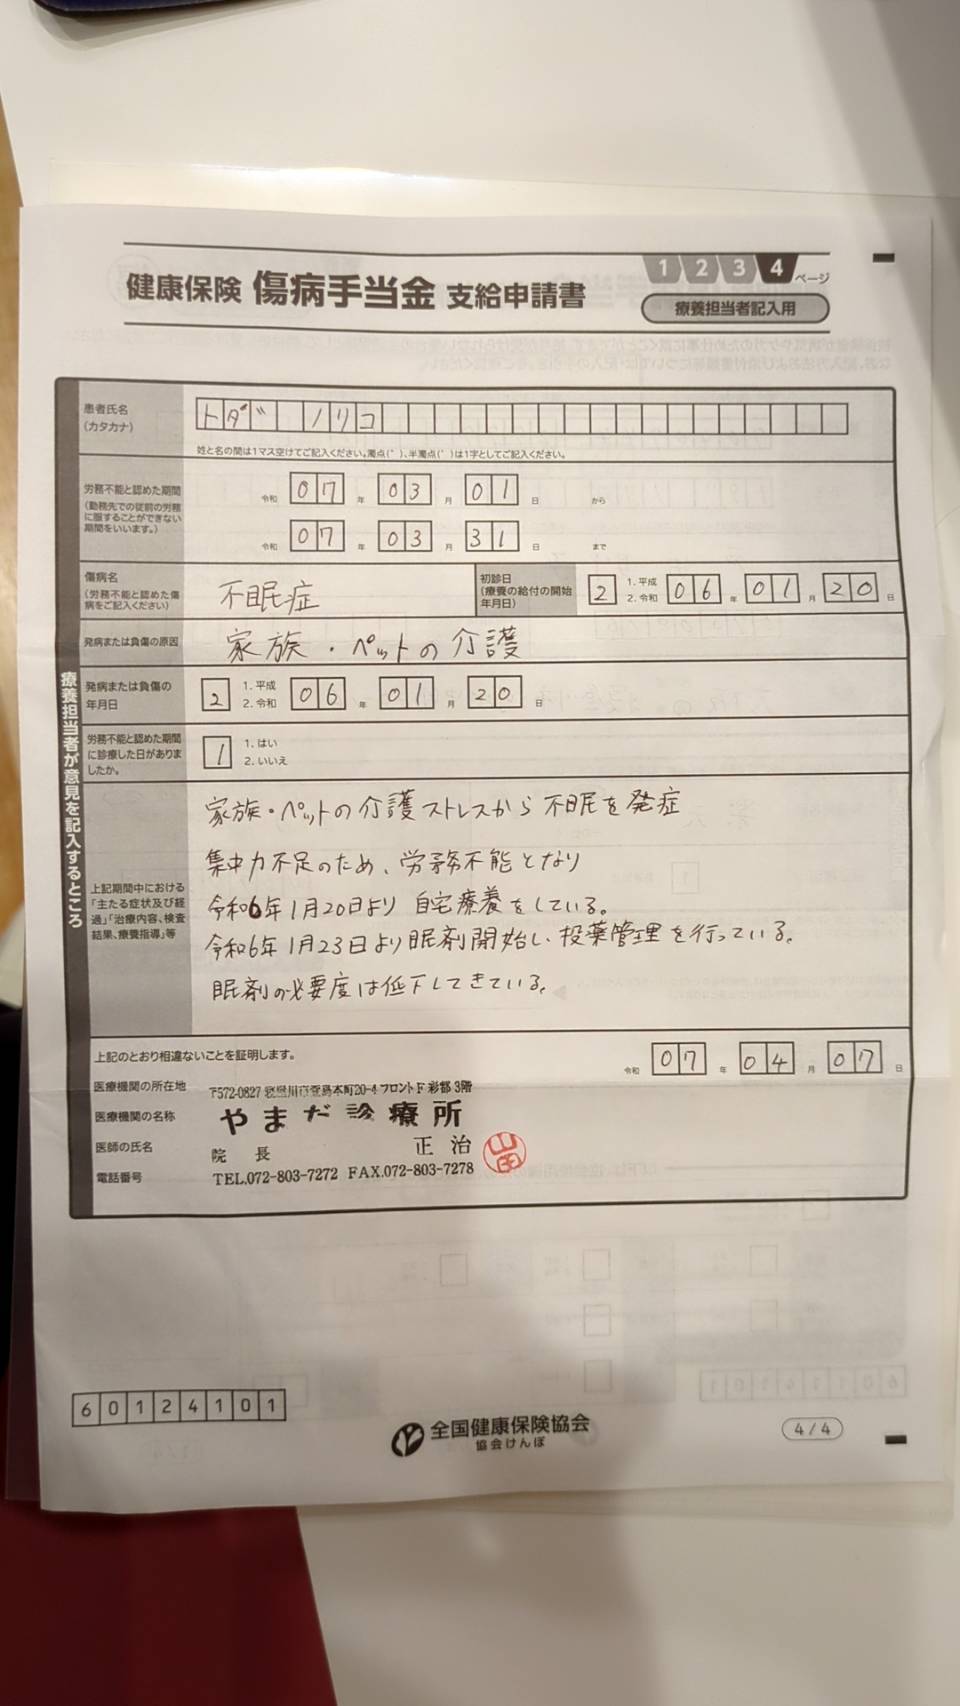 健康保険 傷病手当金 支給申請書
1 2 3 4 ページ
療養担当者記入用
患者氏名
(カタカナ)
トダ゛ ノリコ
姓と名の間は1マス空けてご記入ください。濁点(゛)、半濁点(゜)は1字としてご記入ください。
労務不能と認めた期間
(勤務先での従前の労務に服することができない期間をいいます。)
令和 07 年 03 月 01 日 から
令和 07 年 03 月 31 日 まで
傷病名
(労務不能と認めた傷病をご記入ください)
不眠症
初診日
(療養の給付の開始年月日)
2 1. 平成 2. 令和 06 年 01 月 20 日
発病または負傷の原因
家族・ペットの介護
発病または負傷の年月日
2 1. 平成 2. 令和 06 年 01 月 20 日
労務不能と認めた期間に診療した日がありましたか。
1 1. はい 2. いいえ
療養担当者が意見を記入するところ
上記期間中における「主たる症状及び経過」「治療内容、検査結果、療養指導」等
家族・ペットの介護ストレスから不眠を発症
集中力不足のため、労務不能となり
令和6年1月20日より 自宅療養をしている。
令和6年1月23日より眠剤開始し、投薬管理を行っている。
眠剤の必要度は低下してきている。
上記のとおり相違ないことを証明します。
令和 07 年 04 月 07 日
医療機関の所在地
〒572-0827 寝屋川市萱島本町20-4 フロントF彩都 3階
医療機関の名称
やまだ診療所
医師の氏名
院長 正治
山田
電話番号
TEL.072-803-7272 FAX.072-803-7278
60124101
全国健康保険協会
協会けんぽ
4/4